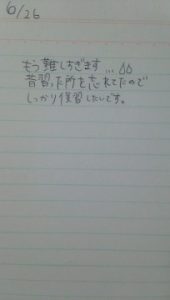 6/26
もう難しすぎます...
昔習った所を忘れてたので
しっかり復習したいです。